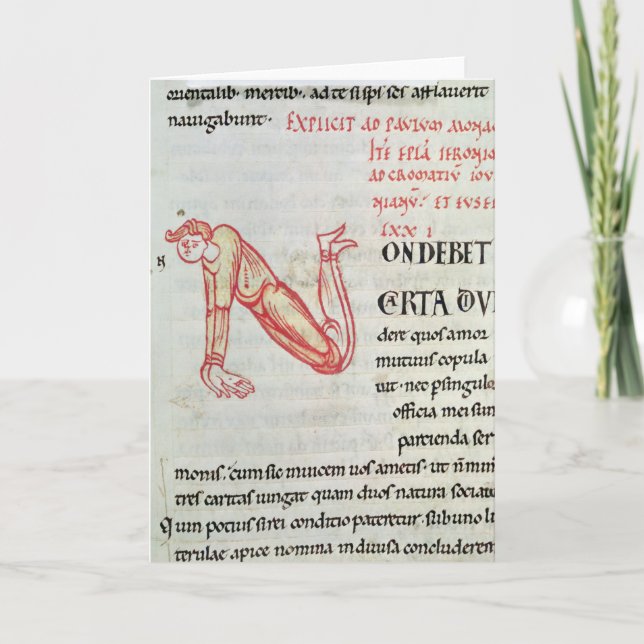 orientalib. mercib. ad te si ipsi ses afflauerit
nauigabunt.
EXPLICIT AD PAULUM MONAC
ITE EPLA IERONIO
AD CROMATIU IOU
NIANU. ET EUSEB
LXX I
N
ON DEBET
CARTA DIUI
dere quos amor
mutuus copula
uit. nec p singulo
officia mei sun
partienda ser
monis. cum sic inuicem uos ametis. ut n min
tres caritas iungat quam duos natura sociau
Quin potius si rei conditio pateretur. sub uno li
terulae apice nomina indiuisa concluderem